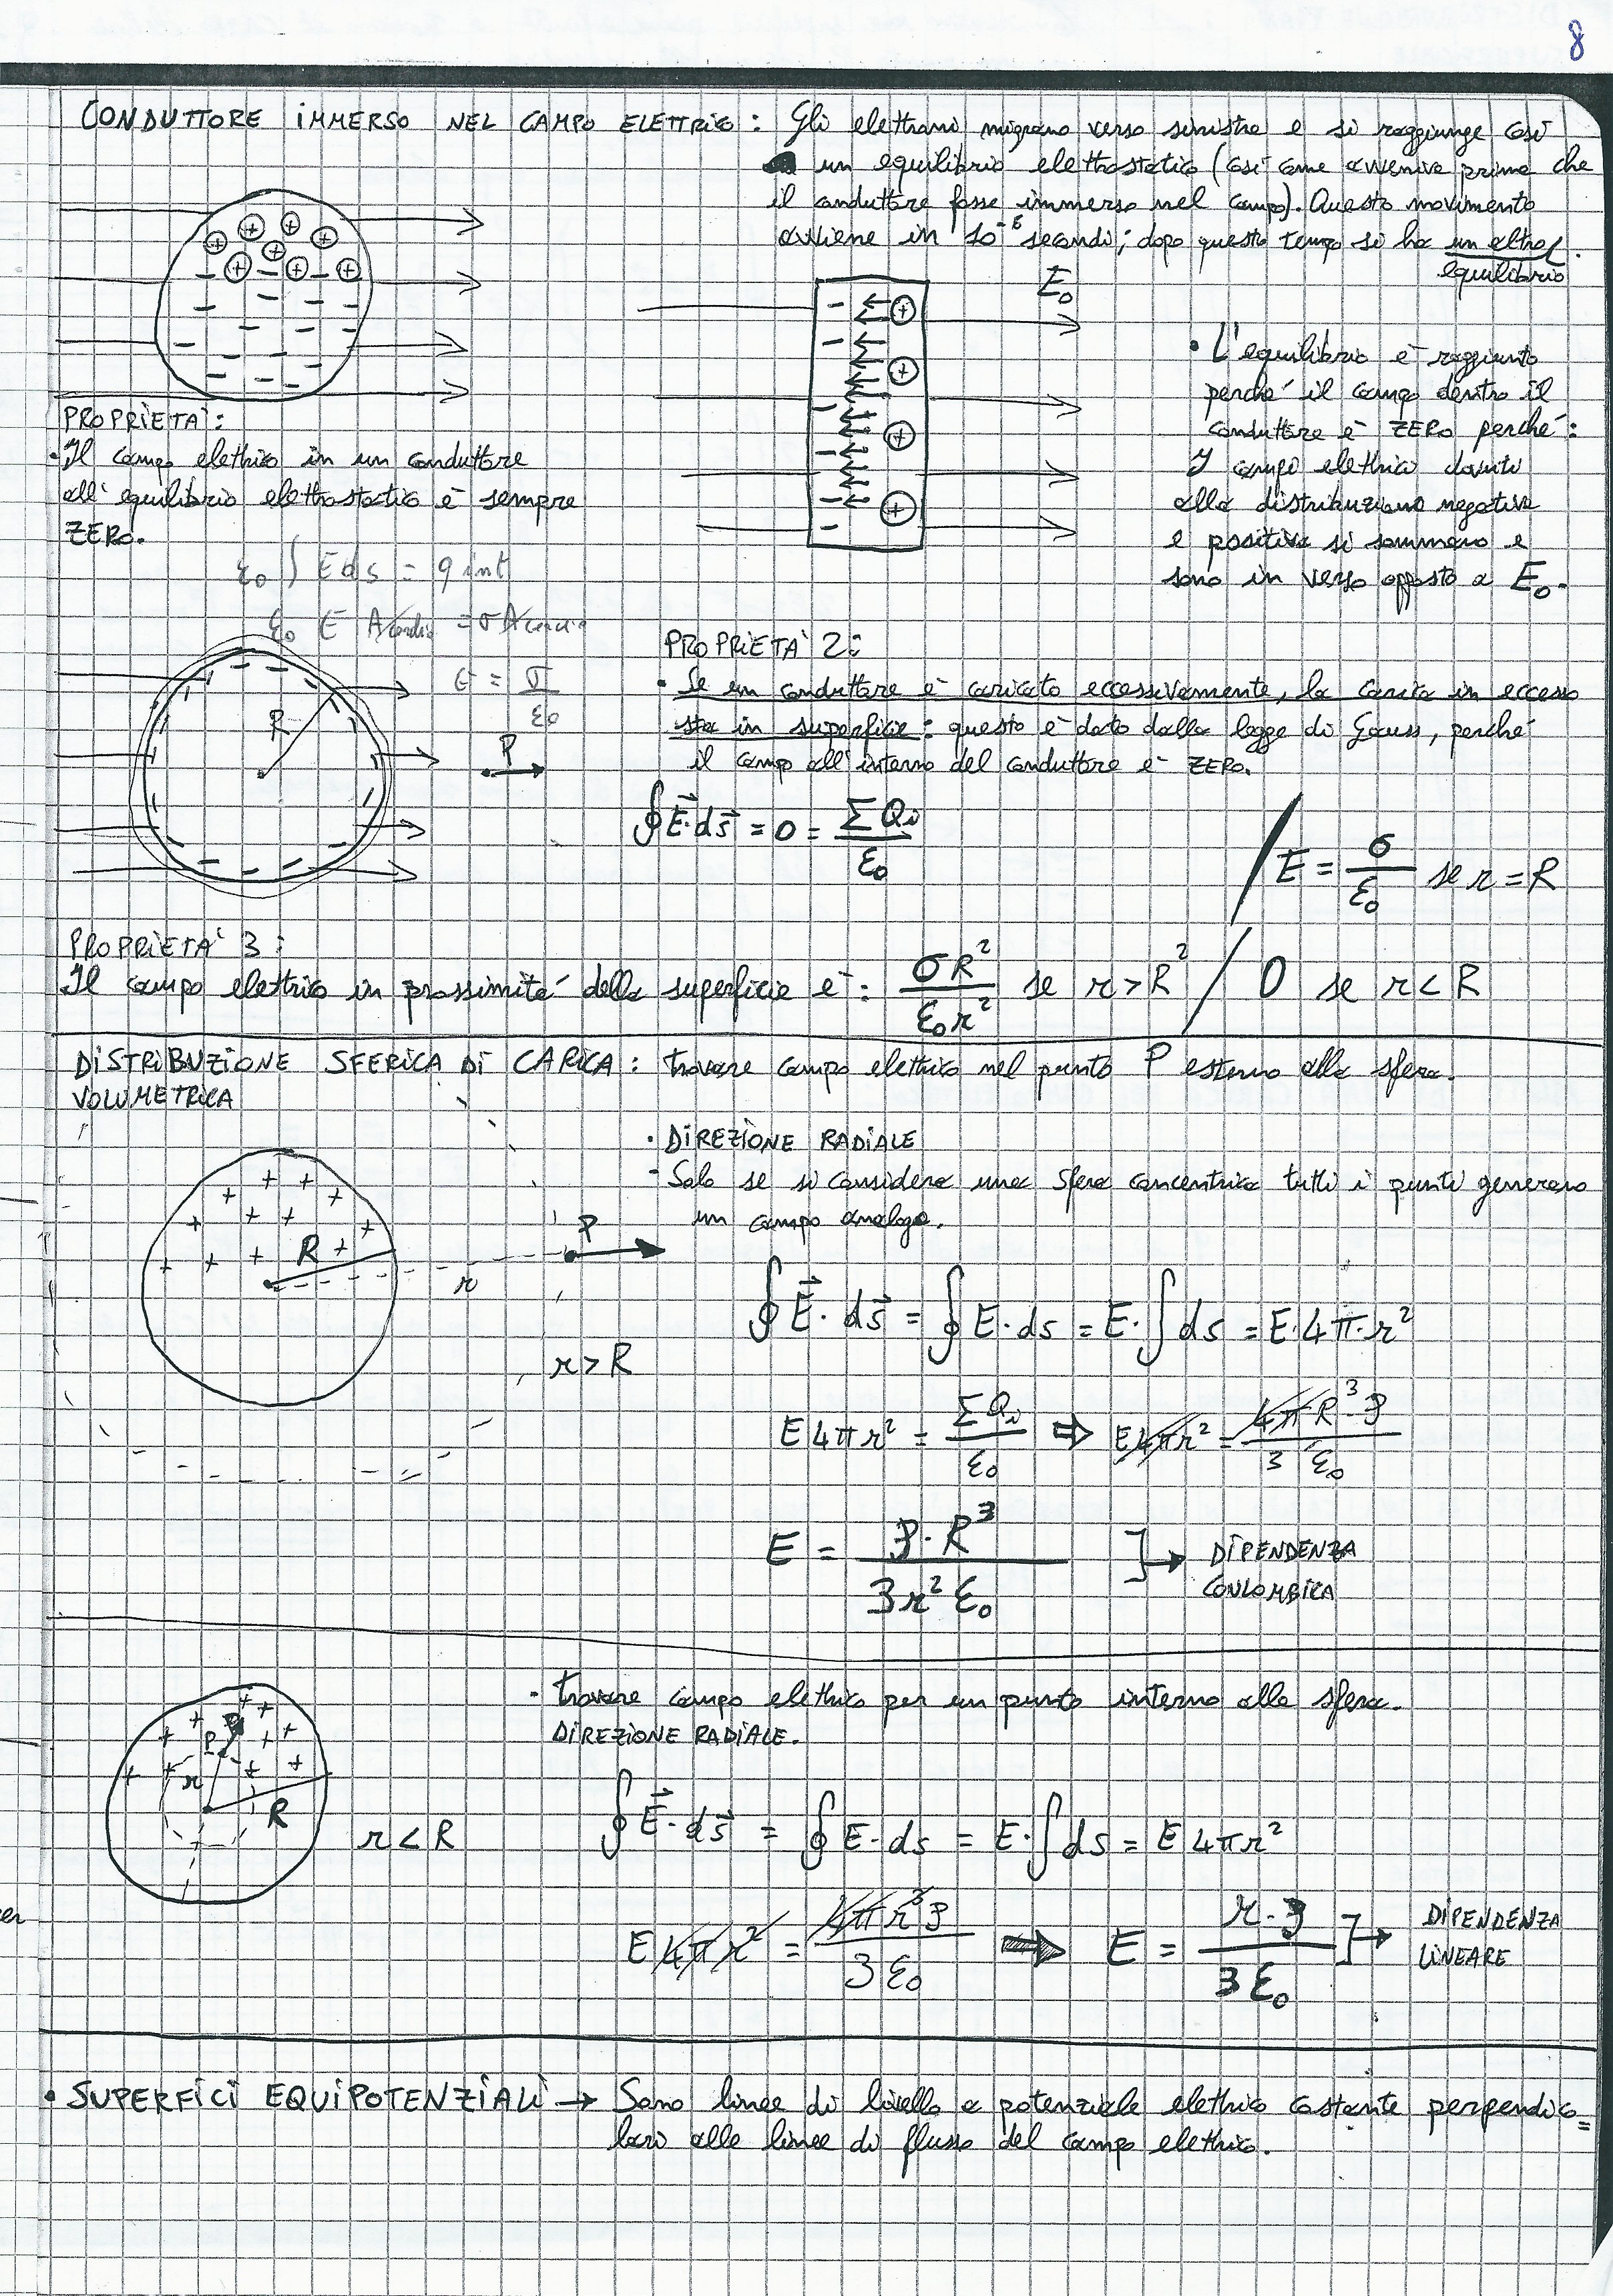 8
CONDUTTORE IMMERSO NEL CAMPO ELETTRICO : Gli elettroni migrano verso sinistra e si raggiunge così
un equilibrio elettrostatico (così come avveniva prima che
il conduttore fosse immerso nel campo). Questo movimento
avviene in 10⁻⁶ secondi; dopo questo tempo si ha un altro
equilibrio.
E₀
• L'equilibrio è raggiunto
perché il campo dentro il
conduttore è ZERO perché:
I campi elettrici dovuti
alla distribuzione negativa
e positiva si sommano e
sono in verso opposto a E₀.
PROPRIETA':
• Il campo elettrico in un conduttore
all'equilibrio elettrostatico è sempre
ZERO.
ε₀ ∫ E ds = q int
ε₀ E A = σ A
E = σ/ε₀
R
P
PROPRIETA' 2:
• Se un conduttore è caricato eccessivamente, la carica in eccesso
sta in superficie: questo è dato dalla legge di Gauss, perché
il campo all'interno del conduttore è ZERO.
∮E⃗·ds⃗ = 0 = ΣQi/ε₀
/ E = σ/ε₀ se r = R
PROPRIETA' 3 :
Il campo elettrico in prossimità della superficie è: σR²/ε₀r² se r > R² / 0 se r < R
DISTRIBUZIONE SFERICA DI CARICA : trovare campo elettrico nel punto P esterno alla sfera.
VOLUMETRICA
• DIREZIONE RADIALE
- Solo se si considera una sfera concentrica tutti i punti generano
un campo analogo.
R
r
P
r > R
∮E⃗·ds⃗ = ∮E·ds = E·∫ds = E·4π·r²
E4πr² = ΣQi/ε₀ ⇒ E4πr² = 4πR³·ρ/3 ε₀
E = ρ·R³/3r²ε₀ ] → DIPENDENZA
COULOMBICA
• trovare campo elettrico per un punto interno alla sfera.
DIREZIONE RADIALE.
P
r
R
r < R
∮E⃗·ds⃗ = ∮E·ds = E·∫ds = E4πr²
E4πr² = 4πr³ρ/3ε₀ ⇒ E = r·ρ/3ε₀ ] → DIPENDENZA
LINEARE
• SUPERFICI EQUIPOTENZIALI → Sono linee di livello a potenziale elettrico costante perpendico=
lari alle linee di flusso del campo elettrico.